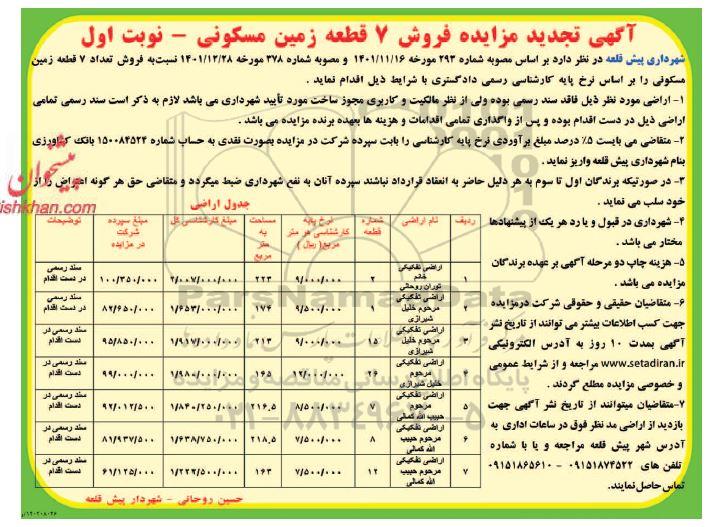 آگهی تجدید مزایده فروش ۷ قطعه زمین مسکونی – نوبت اول
شهرداری پیش قلعه در نظر دارد بر اساس مصوبه شماره ۲۹۳ مورخه ۱۴۰۱/۱۱/۱۶ و مصوبه شماره ۳۷۸ مورخه ۱۴۰۱/۱۲/۲۸ نسبت به فروش تعداد ۷ قطعه زمین
مسکونی را بر اساس نرخ پایه کارشناسی رسمی دادگستری با شرایط ذیل اقدام نماید .
۱- اراضی مورد نظر ذیل فاقد سند رسمی بوده ولی از نظر مالکیت و کاربری مجوز ساخت مورد تأیید شهرداری می باشد لازم به ذکر است سند رسمی تمامی
اراضی ذیل در دست اقدام بوده و پس از واگذاری تمامی اقدامات و هزینه ها بعهده برنده مزایده می باشد .
۲- متقاضی می بایست ۵٪ درصد مبلغ برآوردی نرخ پایه کارشناسی را بابت سپرده شرکت در مزایده بصورت نقدی به حساب شماره ۱۵۰۰۸۴۵۲۴ بانک کشاورزی
بنام شهرداری پیش قلعه واریز نماید .
۳- در صورتیکه برندگان اول تا سوم به هر دلیل حاضر به انعقاد قرارداد نباشند سپرده آنان به نفع شهرداری ضبط میگردد و متقاضی حق هر گونه اعتراض را از
خود سلب می نماید .
۴- شهرداری در قبول و یا رد هر یک از پیشنهادها
مختار می باشد .
۵- هزینه چاپ دو مرحله آگهی بر عهده برندگان
مزایده می باشد .
۶- متقاضیان حقیقی و حقوقی شرکت درمزایده
جهت کسب اطلاعات بیشتر می توانند از تاریخ نشر
آگهی بمدت ۱۰ روز به آدرس الکترونیکی
www.setadiran.ir مراجعه و از شرایط عمومی
و خصوصی مزایده مطلع گردند .
۷-متقاضیان میتوانند از تاریخ نشر آگهی جهت
بازدید از اراضی مد نظر فوق در ساعات اداری به
آدرس شهر پیش قلعه مراجعه و یا با شماره
تلفن های ۰۹۱۵۱۸۷۴۵۲۲ - ۰۹۱۵۱۸۶۵۶۱۰
تماس حاصل نمایند.
جدول اراضی
ردیف نام اراضی شماره قطعه نرخ پایه کارشناسی هر متر مربع( ریال ) مساحت به متر مربع مبلغ کارشناسی کل مبلغ سپرده شرکت در مزایده توضیحات
۱ اراضی تفکیکی خانم توران روحانی ۲ ۹/۰۰۰/۰۰۰ ۲۲۳ ۲/۰۰۷/۰۰۰/۰۰۰ ۱۰۰/۳۵۰/۰۰۰ سند رسمی در دست اقدام
۲ اراضی تفکیکی مرحوم خلیل شیرازی ۱ ۹/۵۰۰/۰۰۰ ۱۷۴ ۱/۶۵۳/۰۰۰/۰۰۰ ۸۲/۶۵۰/۰۰۰ سند رسمی در دست اقدام
۳ اراضی تفکیکی مرحوم خلیل شیرازی ۱۵ ۹/۰۰۰/۰۰۰ ۲۱۳ ۱/۹۱۷/۰۰۰/۰۰۰ ۹۵/۸۵۰/۰۰۰ سند رسمی در دست اقدام
۴ اراضی تفکیکی مرحوم خلیل شیرازی ۲۶ ۱۲/۰۰۰/۰۰۰ ۱۶۵ ۱/۹۸۰/۰۰۰/۰۰۰ ۹۹/۰۰۰/۰۰۰ سند رسمی در دست اقدام
۵ اراضی تفکیکی مرحوم حبیب الله کمالی ۷ ۸/۵۰۰/۰۰۰ ۲۱۶.۵ ۱/۸۴۰/۲۵۰/۰۰۰ ۹۲/۰۱۲/۵۰۰ سند رسمی در دست اقدام
۶ اراضی تفکیکی مرحوم حبیب الله کمالی ۸ ۷/۵۰۰/۰۰۰ ۲۱۸.۵ ۱/۶۳۸/۷۵۰/۰۰۰ ۸۱/۹۳۷/۵۰۰ سند رسمی در دست اقدام
۷ اراضی تفکیکی مرحوم حبیب الله کمالی ۱۲ ۷/۵۰۰/۰۰۰ ۱۶۳ ۱/۲۲۲/۵۰۰/۰۰۰ ۶۱/۱۲۵/۰۰۰ سند رسمی در دست اقدام
حسین روحانی - شهردار پیش قلعه
پیشخوان
ishkhan.com
ParsNamadData
پایگاه اطلاع رسانی مناقصه و مزایده